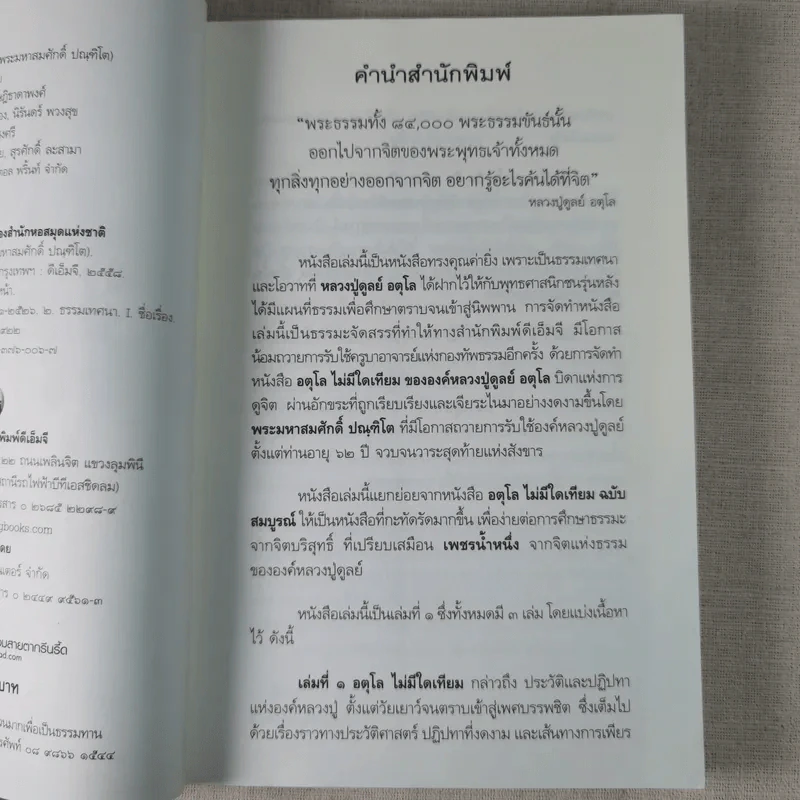 พระมหาสมศักดิ์ ปณฺฑิโต)
นิรันดร์ พวงสุข
สุรศักดิ์ ละสามา
พริ้นท์ จำกัด
องสำนักหอสมุดแห่งชาติ
หาสมศักดิ์ ปณฺฑิโต).
กรุงเทพฯ : ดีเอ็มจี, ๒๕๕๘.
หน้า.
-๒๕๒๖. ๒. ธรรมเทศนา. I. ชื่อเรื่อง.
๙๒๒
๓๗๖-๐๐๖-๗
พิมพ์ดีเอ็มจี
๒๒ ถนนเพลินจิต แขวงลุมพินี
ถานีรถไฟฟ้าบีทีเอสชิดลม)
สาร ๐ ๒๖๘๕ ๒๒๙๘-๙
gbooks.com
โดย
เตอร์ จำกัด
สาร ๐ ๒๔๔๙ ๙๕๖๑-๓
อมสายตากรีนรี้ด
od.com
บาท
วนมากเพื่อเป็นธรรมทาน
รศัพท์ ๐๘ ๙๘๖๖ ๑๕๔๔
คำนำสำนักพิมพ์
“พระธรรมทั้ง ๘๔,๐๐๐ พระธรรมขันธ์นั้น
ออกไปจากจิตของพระพุทธเจ้าทั้งหมด
ทุกสิ่งทุกอย่างออกจากจิต อยากรู้อะไรค้นได้ที่จิต”
หลวงปู่ดูลย์ อตุโล
หนังสือเล่มนี้เป็นหนังสือทรงคุณค่ายิ่ง เพราะเป็นธรรมเทศนา
และโอวาทที่ หลวงปู่ดูลย์ อตุโล ได้ฝากไว้ให้กับพุทธศาสนิกชนรุ่นหลัง
ได้มีแผนที่ธรรมเพื่อศึกษาตราบจนเข้าสู่นิพพาน การจัดทำหนังสือ
เล่มนี้เป็นธรรมะจัดสรรที่ทำให้ทางสำนักพิมพ์ดีเอ็มจี มีโอกาส
น้อมถวายการรับใช้ครูบาอาจารย์แห่งกองทัพธรรมอีกครั้ง ด้วยการจัดทำ
หนังสือ อตุโล ไม่มีใดเทียม ขององค์หลวงปู่ดูลย์ อตุโล บิดาแห่งการ
ดูจิต ผ่านอักขระที่ถูกเรียบเรียงและเจียระไนมาอย่างงดงามขึ้นโดย
พระมหาสมศักดิ์ ปณฺฑิโต ที่มีโอกาสถวายการรับใช้องค์หลวงปู่ดูลย์
ตั้งแต่ท่านอายุ ๖๒ ปี จวบจนวาระสุดท้ายแห่งสังขาร
หนังสือเล่มนี้แยกย่อยจากหนังสือ อตุโล ไม่มีใดเทียม ฉบับ
สมบูรณ์ ให้เป็นหนังสือที่กะทัดรัดมากขึ้น เพื่อง่ายต่อการศึกษาธรรมะ
จากจิตบริสุทธิ์ ที่เปรียบเสมือน เพชรน้ำหนึ่ง จากจิตแห่งธรรม
ขององค์หลวงปู่ดูลย์
หนังสือเล่มนี้เป็นเล่มที่ ๑ ซึ่งทั้งหมดมี ๓ เล่ม โดยแบ่งเนื้อหา
ไว้ ดังนี้
เล่มที่ ๑ อตุโล ไม่มีใดเทียม กล่าวถึง ประวัติและปฏิปทา
แห่งองค์หลวงปู่ ตั้งแต่วัยเยาว์จนตราบเข้าสู่เพศบรรพชิต ซึ่งเต็มไป
ด้วยเรื่องราวทางประวัติศาสตร์ ปฏิปทาที่งดงาม และเส้นทางการเพียร